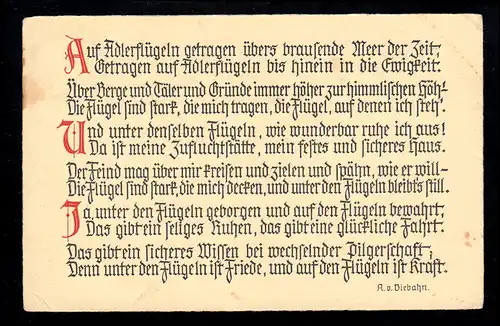 Auf Adlerflügeln getragen übers brausende Meer der Zeit,
Getragen auf Adlerflügeln bis hinein in die Ewigkeit.
Über Berge und Täler und Gründe immer höher zur himmlischen Höh!
Die Flügel sind stark, die mich tragen, die Flügel, auf denen ich steh'.
Und unter denselben Flügeln, wie wunderbar ruhe ich aus!
Da ist meine Zufluchtstätte, mein festes und sicheres Haus.
Der Feind mag über mir kreisen und zielen und spähn, wie er will–
Die Flügel sind stark, die mich decken, und unter den Flügeln bleibt's still.
Ja, unter den Flügeln geborgen und auf den Flügeln bewahrt,
Das gibt ein seliges Ruhen, das gibt eine glückliche Fahrt.
Das gibt ein sicheres Wissen bei wechselnder Pilgerschaft;
Denn unter den Flügeln ist Friede, und auf den Flügeln ist Kraft.
A. v. Viebahn.